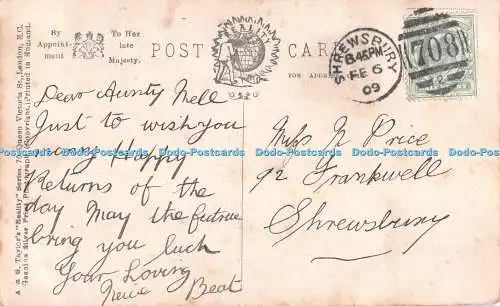 By Appointment
To Her late Majesty.
POST CARD
REALITY
FOR ADDRESS
SHREWSBURY
8.45 PM
FE 6
09
708
A & G. Taylor's "Reality" Series. Queen Victoria St., London, E.C.
Printed in England.
Dear Aunty Nell
Just to wish you
many Happy
Returns of the
day May the future
bring you luck
Your Loving
Neice Beat
Miss N Price
92 Frankwell
Shrewsbury
Dodo-Postcards Dodo-Postcards Dodo-Postcards Dodo-Postcards Dodo-Postcards Dodo-Postcards